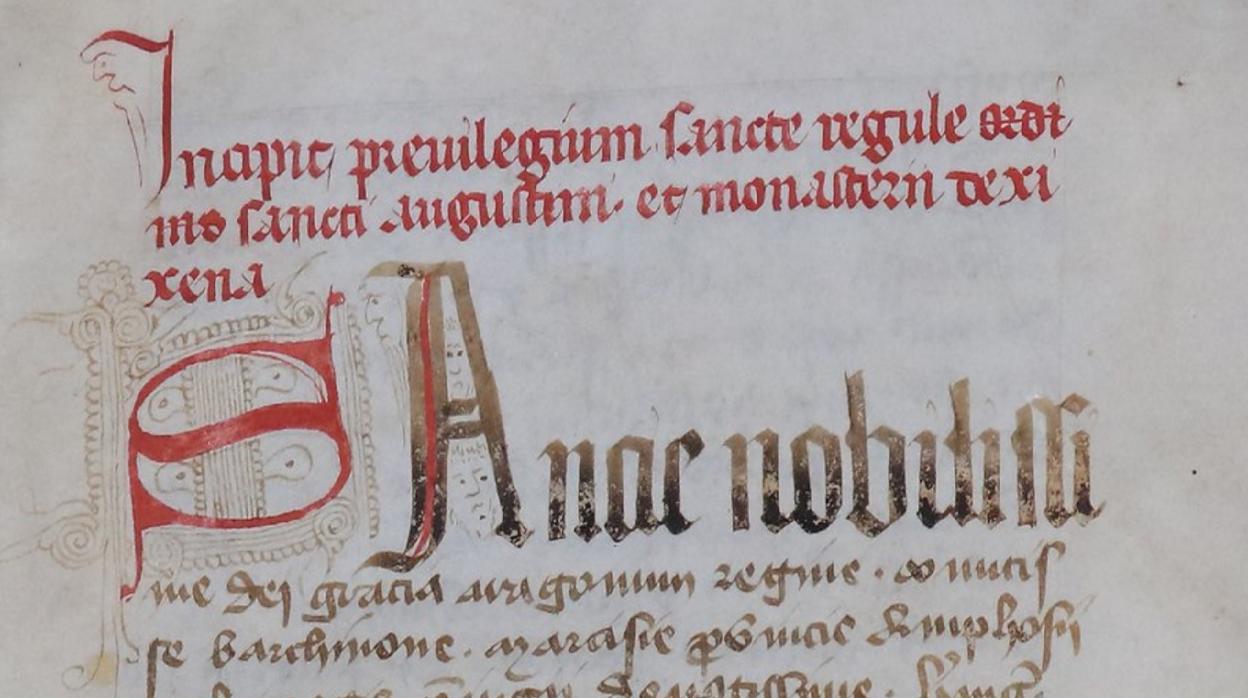 Incipit preuilegium sancte regule ordi
nis sancti augustini. et monasterii de xi
xena
SAncie nobilissi
me dei gracia aragonum regine. comitis
se barchinone. marcisie